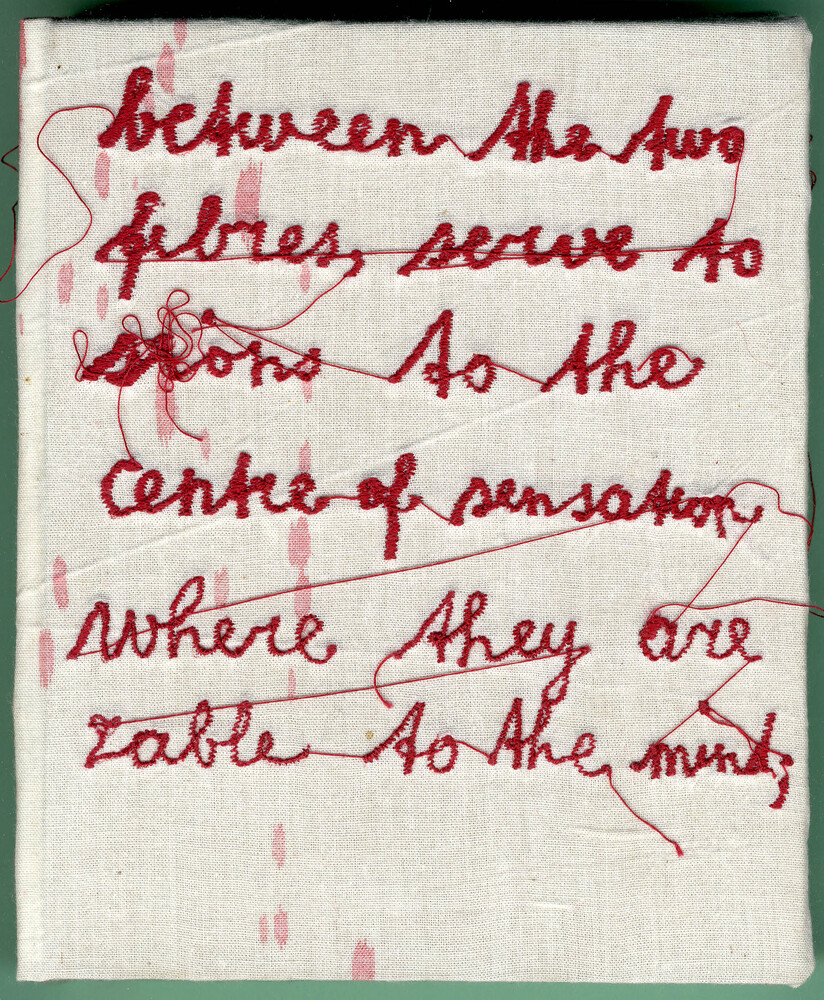 between the two
fibres, serve to
sions to the
centre of sensation,
where they are
rable to the mind;